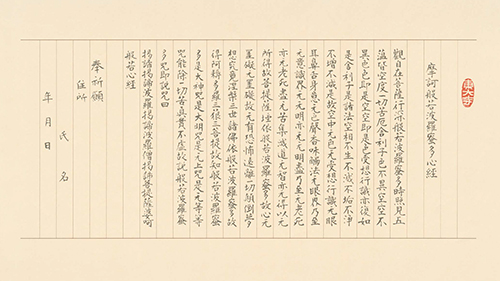 摩訶般若波羅蜜多心經
觀自在菩薩行深般若波羅蜜多時照見五
蘊皆空度一切苦厄舍利子色不異空空不
異色色即是空空即是色受想行識亦復如
是舍利子是諸法空相不生不滅不垢不淨
不增不減是故空中无色无受想行識无眼
耳鼻舌身意无色聲香味觸法无眼界乃至
无意識界无无明亦无无明盡乃至无老死
亦无老死盡无苦集滅道无智亦无得以无
所得故菩提薩埵依般若波羅蜜多故心无
罣礙无罣礙故无有恐怖遠離一切顛倒夢
想究竟涅槃三世諸佛依般若波羅蜜多故
得阿耨多羅三藐三菩提故知般若波羅蜜
多是大神咒是大明咒是无上咒是无等等
咒能除一切苦真實不虛故說般若波羅蜜
多咒即說咒曰
揭諦揭諦波羅揭諦波羅僧揭諦菩提薩婆訶
般若心經
奉祈願
住所
氏名
年月日